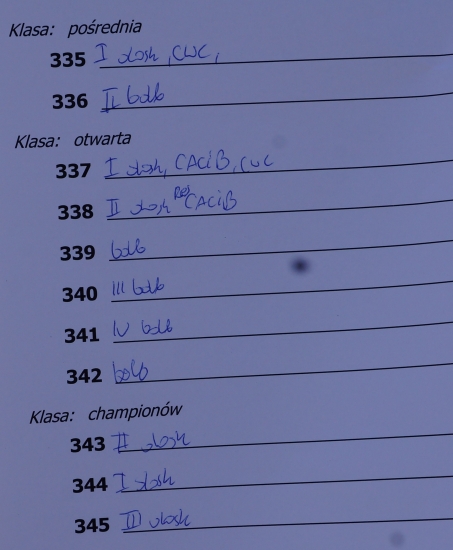 Klasa: pośrednia
335 I dosk, CWC,
336 II bdb
Klasa: otwarta
337 I dosk, CACiB, CWC
338 II dosk Res CACiB
339 bdb
340 III bdb
341 IV bdb
342 bdb
Klasa: championów
343 II dosk
344 I dosk
345 III dosk